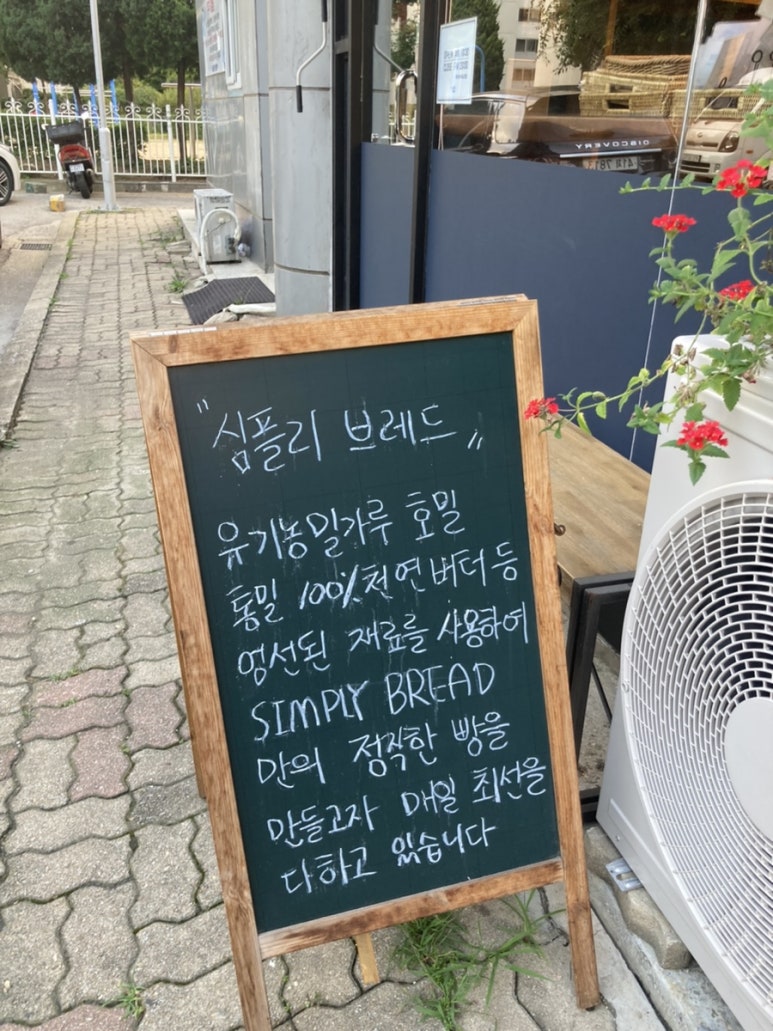 "심플리 브레드"
유기농밀가루 호밀
통밀 100% 천연버터등
엄선된 재료를 사용하여
SIMPLY BREAD
만의 정직한 빵을
만들고자 매일 최선을
다하고 있습니다
DISCOVERY